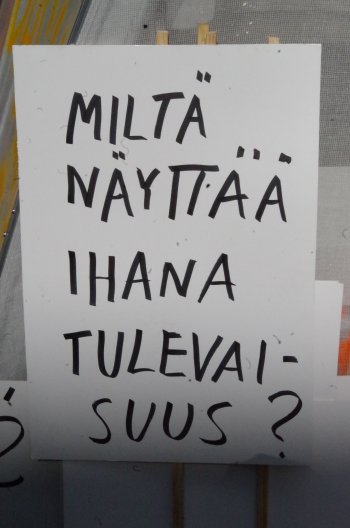 MILTÄ
NÄYTTÄÄ
IHANA
TULEVAI-
SUUS?